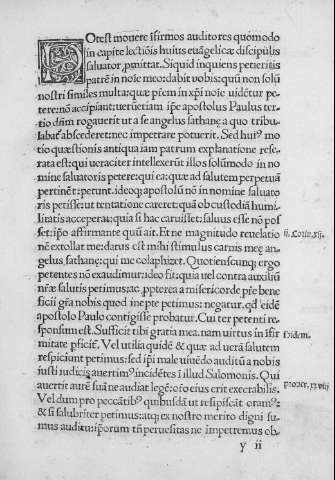 POtest mouere ĩfirmos auditores quomodo
in capite lectiõis huius euãgelicæ discipulis
saluator ꝓmittat. Siquid inquiens petieritis
patrẽ in noĩe meo: dabit uobis: quũ non solũ
nostri similes multa: quæ p̃em in xp̃i noĩe uidẽtur pe-
tere: nõ accipiant: uerũetiam ip̃e apostolus Paulus ter-
tio dñm rogauerit ut a se angelus sathanæ a quo tribu-
labaᷓ abscederet: nec impetrare potuerit. Sed huiꝰ mo
tio quæstionis antiqua iam patrum explanatione rese-
rata est: qui ueraciter intellexerũt illos solũmodo in no
mine saluatoris petere: qui ea: quæ ad salutem perpetuã
pertinẽt: petunt. ideoq; apostolũ nõ in nomine saluato
ris petisse: ut tentatione careret: quã ob custodiã humi-
litatis acceperat: qua si hac caruisset: saluus esse nõ pos
set: ip̃o affirmante quũ ait. Et ne magnitudo reuelatio
nẽ extollat me: datus est mihi stimulus carnis meæ an-
gelus sathanæ: qui me colaphizet. Quotienscunq; ergo
petentes nõ exaudimur: ideo fit: quia uel contra auxiliũ
nr̃æ salutis petimus: ac ꝓpterea a misericorde p̃re bene
ficii gr̃a nobis quod inepte petimus: negatur. qd̃ eidẽ
apostolo Paulo contigisse probatur. Cui ter petenti re-
sponsum est. Sufficit tibi gratia mea. nam uirtus in ĩfir
mitate ꝑficiᷓ. Vel utilia quidẽ & quæ ad uerã salutem
respiciunt petimus: sed ip̃i male uiuẽdo auditũ a nobis
iusti iudicis auertimꝰ incidẽtes ĩ illud Salomonis. Qui
auertit aurẽ suã ne audiat legẽ: or̃o eius erit execrabilis.
Vel dum pro peccãtibꝰ quibusdã ut resipiscãt oramꝰ:
& si salubriter petimus: atq; ex nostro merito digni su-
mus auditu: ip̃orum tñ peruesitas ne impetremus ob-
y ii
ii. Corin. xii.
Ibidem.
prouer. xxviii